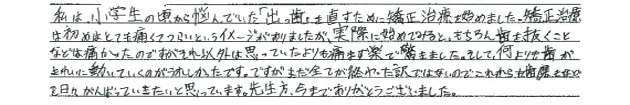 私は小学生の頃から悩んでいた「出っ歯」を直すために矯正治療を始めました。矯正治療
は初めはとても痛くてつらいというイメージがありましたが、実際に始めてみると、もちろん歯を抜くこと
などは痛かったのですがそれ以外は思っていたよりも痛まず楽で驚きました。そして、何よりも歯が
きれいに動いていくのがうれしかったです。ですがまだ全てが終わった訳ではないのでこれからも歯磨きなど
を日々がんばっていきたいと思っています。先生方、今までありがとうございました。